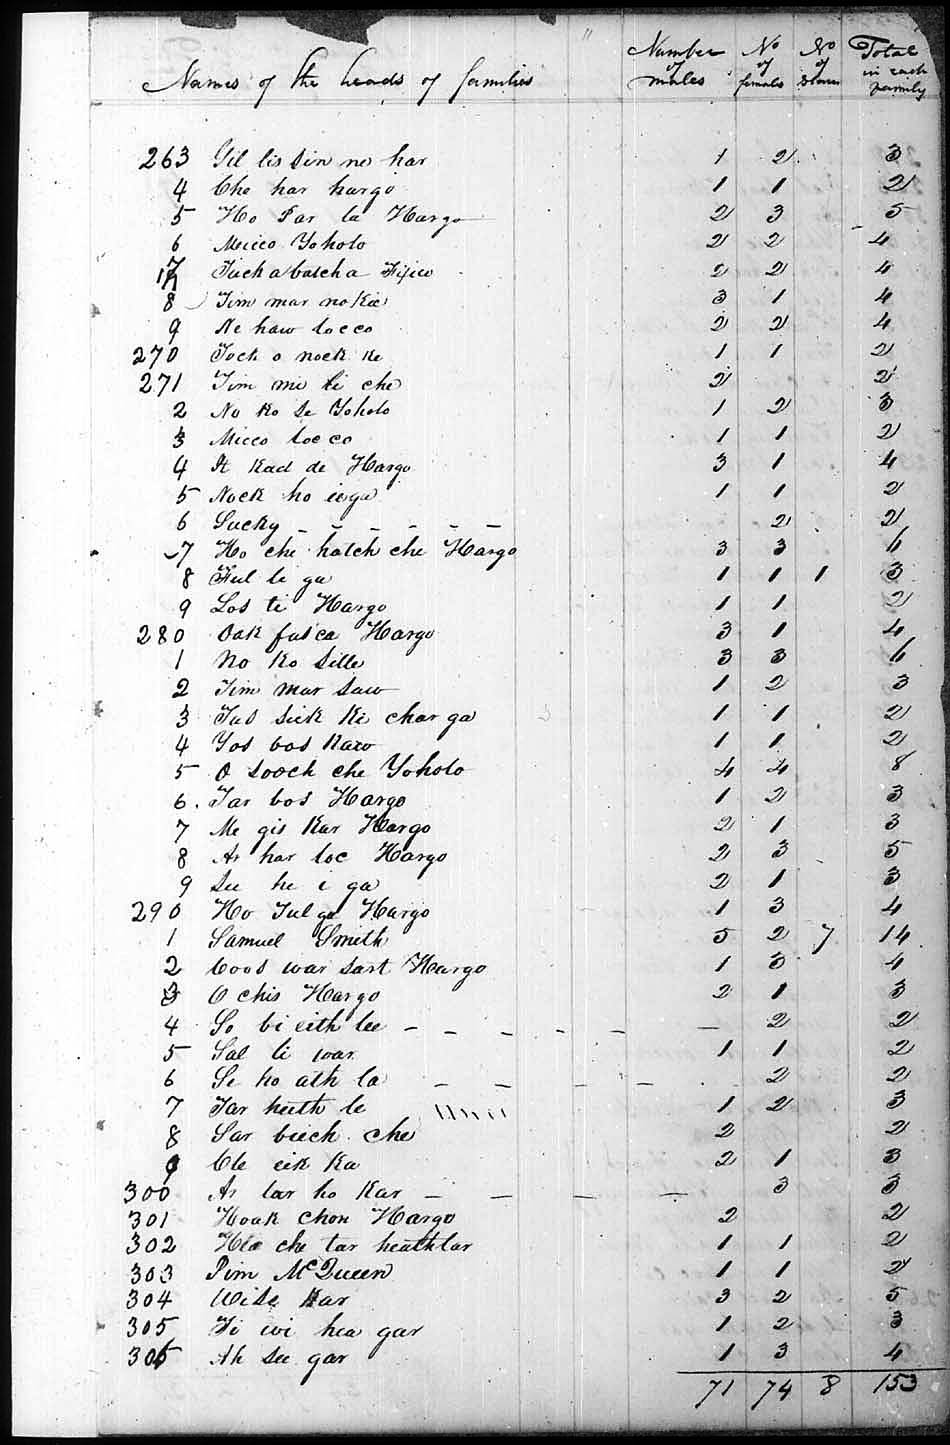 Names of the heads of families Number of males No of females No of Slaves Total in each family
263 Yil lis sin ne har 1 2 3
4 Cho har hargo 1 1 2
5 Ho Par la Hargo 2 3 5
6 Micco Yoholo 2 2 4
7 Tuckabatcha Fixico 2 2 4
8 Tim mar no Kee 3 1 4
9 Ne haw locco 2 2 4
270 Tock o nock ke 1 1 2
271 Tim mi li che 2 2
2 No Ko se Yoholo 1 2 3
3 Micco locco 1 1 2
4 It Kad de Hargo 3 1 4
5 Nock ho iega 1 1 2
6 Sucky 2 2
7 Ho che hatch che Hargo 3 3 6
8 Ful le ga 1 1 1 3
9 Los ti Hargo 1 1 2
280 Oak fus ca Hargo 3 1 4
1 No Ko sille 3 3 6
2 Tim mar saw 1 2 3
3 Tus sick Ke char ga 1 1 2
4 Yos bos Kaw 1 1 2
5 O sooch che Yoholo 4 4 8
6 Tar bos Hargo 1 2 3
7 Me gis Kar Hargo 2 1 3
8 Ar har loc Hargo 2 3 5
9 See he i ga 2 1 3
290 Ho Tul ga Hargo 1 3 4
1 Samuel Smith 5 2 7 14
2 Coos war sart Hargo 1 3 4
3 O chis Hargo 2 1 3
4 So bi eith lee 2 2
5 Sal li war 1 1 2
6 Se ho ath la 2 2
7 Tar heith le 1 2 3
8 Sar beech che 2 2
9 Cle eik Ka 2 1 3
300 Ar lar ho Kar 3 3
301 Hoak chon Hargo 2 2
302 Hla che tar heathlar 1 1 2
303 Pim McQueen 1 1 2
304 Wise Kar 3 2 5
305 Ti wi hea gar 1 2 3
306 Ah see gar 1 3 4
71 74 8 153